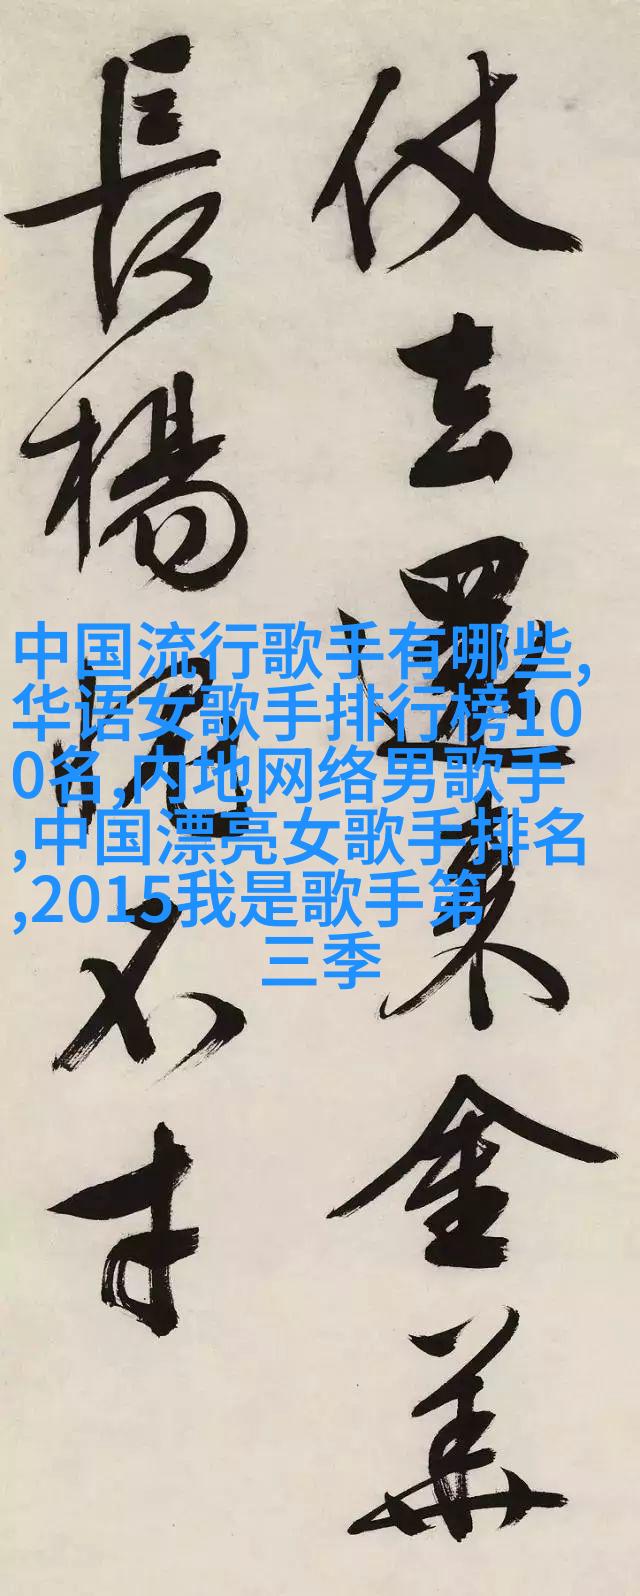 仗去還来金華
長楊不才
中国流行歌手有哪些,
华语女歌手排行榜10
0名,内地网络男歌手
,中国漂亮女歌手排名
,2015我是歌手第
三季